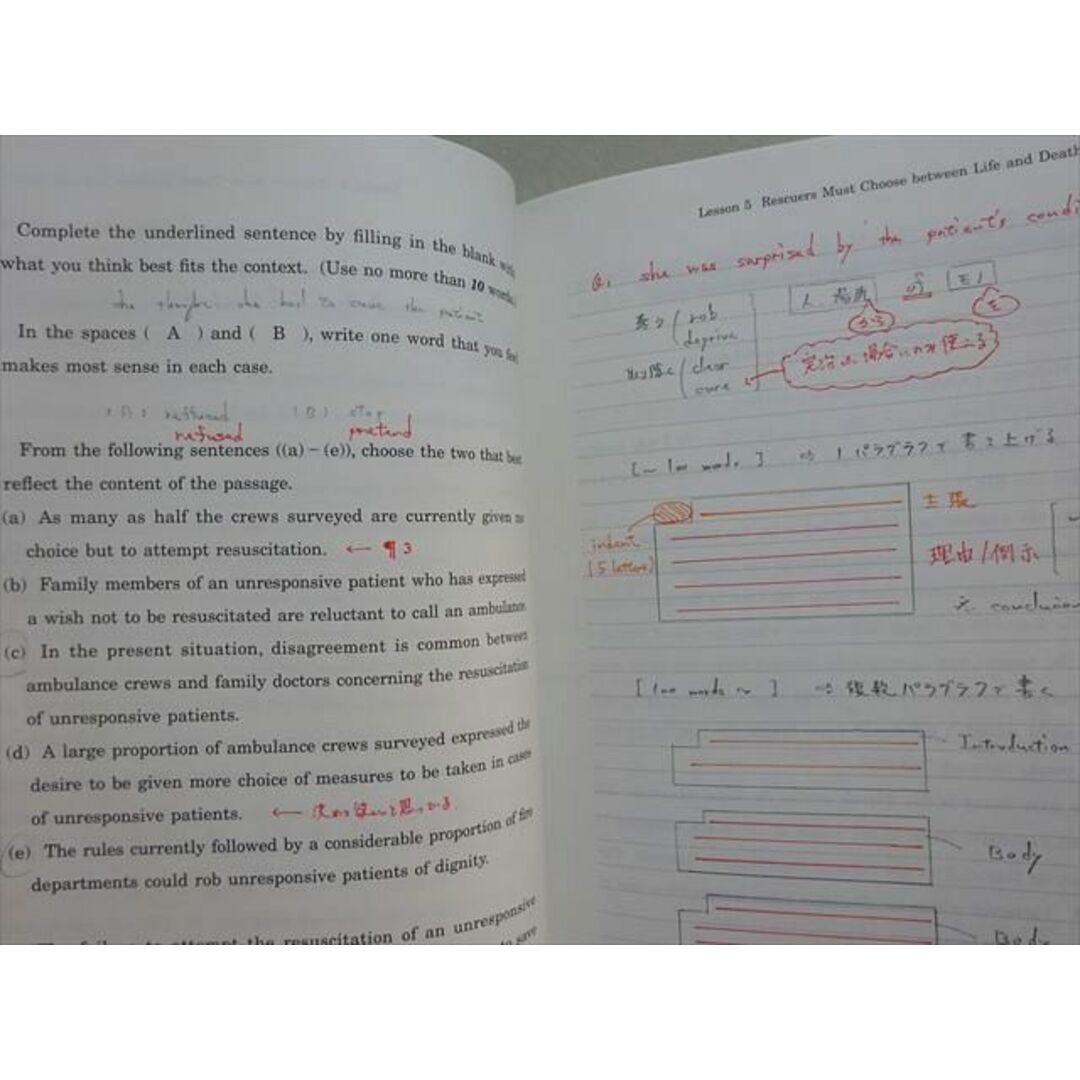 Complete the underlined sentence by filling in the blank with
what you think best fits the context. (Use no more than 10 words
she thought she had to the patient
In the spaces ( A ) and ( B ), write one word that you feel
makes most sense in each case.
(A) refused (B) stop
refused pretend
From the following sentences ((a) – (e)), choose the two that best
reflect the content of the passage.
(a) As many as half the crews surveyed are currently given no
choice but to attempt resuscitation. ← ¶3
(b) Family members of an unresponsive patient who has expressed
a wish not to be resuscitated are reluctant to call an ambulance.
(c) In the present situation, disagreement is common between
ambulance crews and family doctors concerning the resuscitation
of unresponsive patients.
(d) A large proportion of ambulance crews surveyed expressed the
desire to be given more choice of measures to be taken in cases
of unresponsive patients. ←
(e) The rules currently followed by a considerable proportion of fire
departments could rob unresponsive patients of dignity.
the resuscitation of an unresponsive
to save
Lesson 5 Rescuers Must Choose between Life and Death
Q1 she was surprised by the patient's condi
奪う rob 人・場所 of モノ
deprive から を
取り除く clear
cure 場合にのみ使える
[~100 words] ⇒ 1パラグラフで書き上げる
主張
indent
(5 letters)
理由/例示
conclusion
[100 words~] ⇒ 複数パラグラフで書く
Introduction
Body
Body